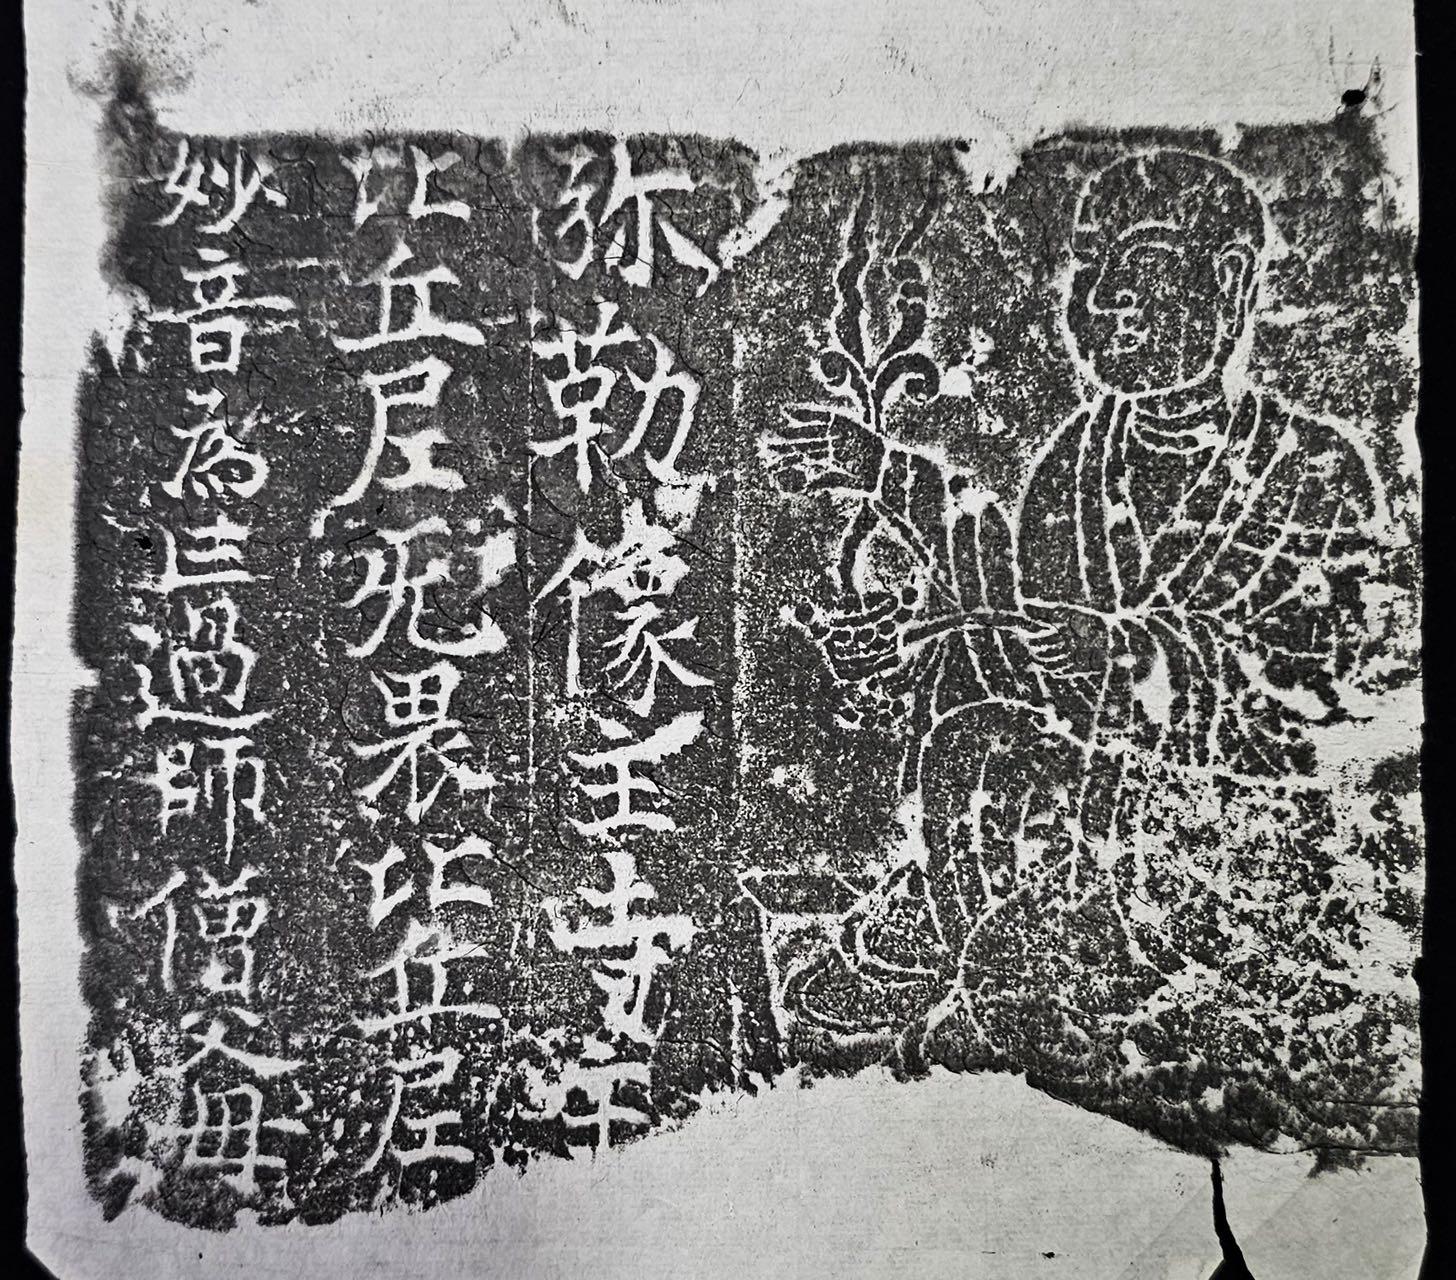 弥勒像主寺
比丘尼畏比丘尼
妙音為亡過師僧父母